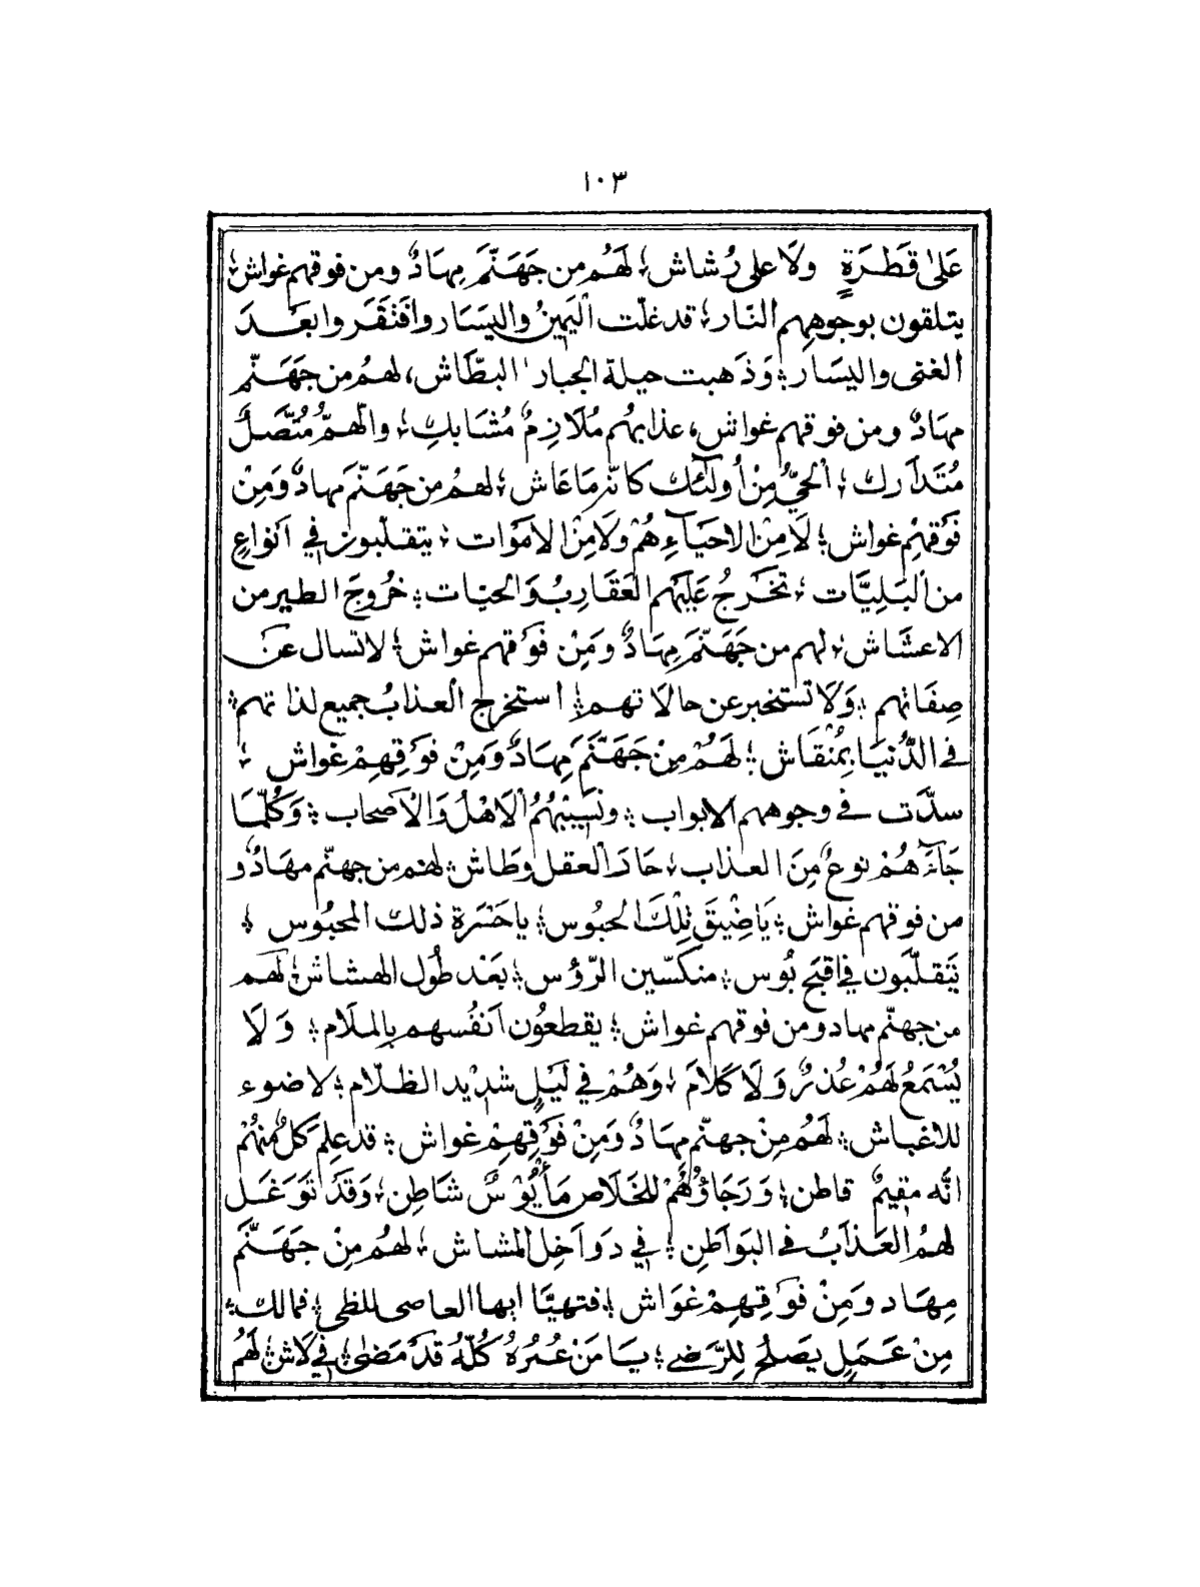 ١٠٣
عَلىٰ قَطْرَةٍ ولَا على رُشاش؛ لَهُم من جَهَنَّمَ مِهَادٌ ومن فوقهم غواش؛
يتلقون بوجوهِهم النّار؛ قد غلّت اليَمِينُ واليَسَار وافْتَقَروا بَعْدَ
الغنى واليسَار؛ وَذَهبت حيلة الجبار البطَّاش، لهمُ من جَهَنَّم
مِهَادٌ ومن فوقهم غواش، عذابهُم مُلَازِمٌ مُتشَابك؛ والهمُّ مُتَّصلٌ
مُتَدَارك؛ الحيُّ مِنْ أولٰٓئك كانّه مَا عَاش؛ لهمُ من جَهَنّمَ مهادٌ وَمِنْ
فَوْقِهِم غواش؛ لَا مِنَ الاحيَآءِ هُمْ ولَا مِنَ الامَوات؛ يتقلّبون في اَنواعِ
من البَلِيَّات؛ تخَرجُ عَلَيْهم العَقَارِبُ وَالحيّات؛ خُرُوجَ الطير من
الاعشَاش؛ لهم من جَهَنَّمَ مِهَادٌ ومَنِْ فَوْقهم غواش؛ لا تسال عَنْ
صِفَاتهم؛ وَلَا تستخبر عن حالَاتهم؛ استخرج العذابُ جميع لذاتهم؛
فى الدُّنيَا بِمُنْقَاش؛ لَهُمْ مِنْ جَهَنَّمَ مِهَادٌ وَمِنْ فَوْقِهِمْ غَواش؛
سدَّت فى وجوههم الابواب؛ ونَسِيَتْهُمُ الاهْلُ وَالْاَصْحاب؛ وَكُلَّمَا
جَآءَهُمْ نوعٌ مِنَ العذاب؛ حَادَ العقل وطَاش؛ لهم من جهنّم مهَادٌ و
من فوقهم غواش؛ يَا ضِيْقَ تِلْكَ الحبُوس؛ يا حَسْرَة ذلك المحبُوس؛
يَتَقلّبَون في اقبَح بُوس؛ منكسّين الرّؤس؛ بَعْد طُول الهشاش؛ لهم
من جهنّم مهاد ومن فوقهم غواش؛ يقطعُون اَنفُسهم بِالملَام؛ وَلَا
يُسْتَمَعُ لَهُمْ عُذرٌ وَلَا كَلامَ؛ وَهُمْ في لَيْلٍ شَدْيِد الظلّام؛ لا ضوء
للاغباش؛ لَهُم مِنْ جهنّم مِهَادٌ وَمِنْ فَوْقِهِمْ غواش؛ قد عِلمَ كلٌ منهُمْ
انّه مقيمٌ قاطن؛ وَرَجَاؤُهُمْ للخَلاص مَأيُوْسٌ شَاطِن؛ وَقَدْ تَوَغَل
لهمُ العَذَابُ فى البَوَاطِن؛ فِي دَوَاخِل المشاش؛ لهمُ مِنْ جَهَنَّمَ
مِهَاد وَمِنْ فَوْقِهِمْ غَوَاش؛ فتهيَّا ايها العاصى للظى؛ فمالك؛
مِنْ عَمَلٍ يصَلحُ لِلرَّضٰے؛ يَا مَنْ عُمُرُهُ كُلُّهُ قَدْ مَضىٰ؛ فِي لَاش؛ لَهُم